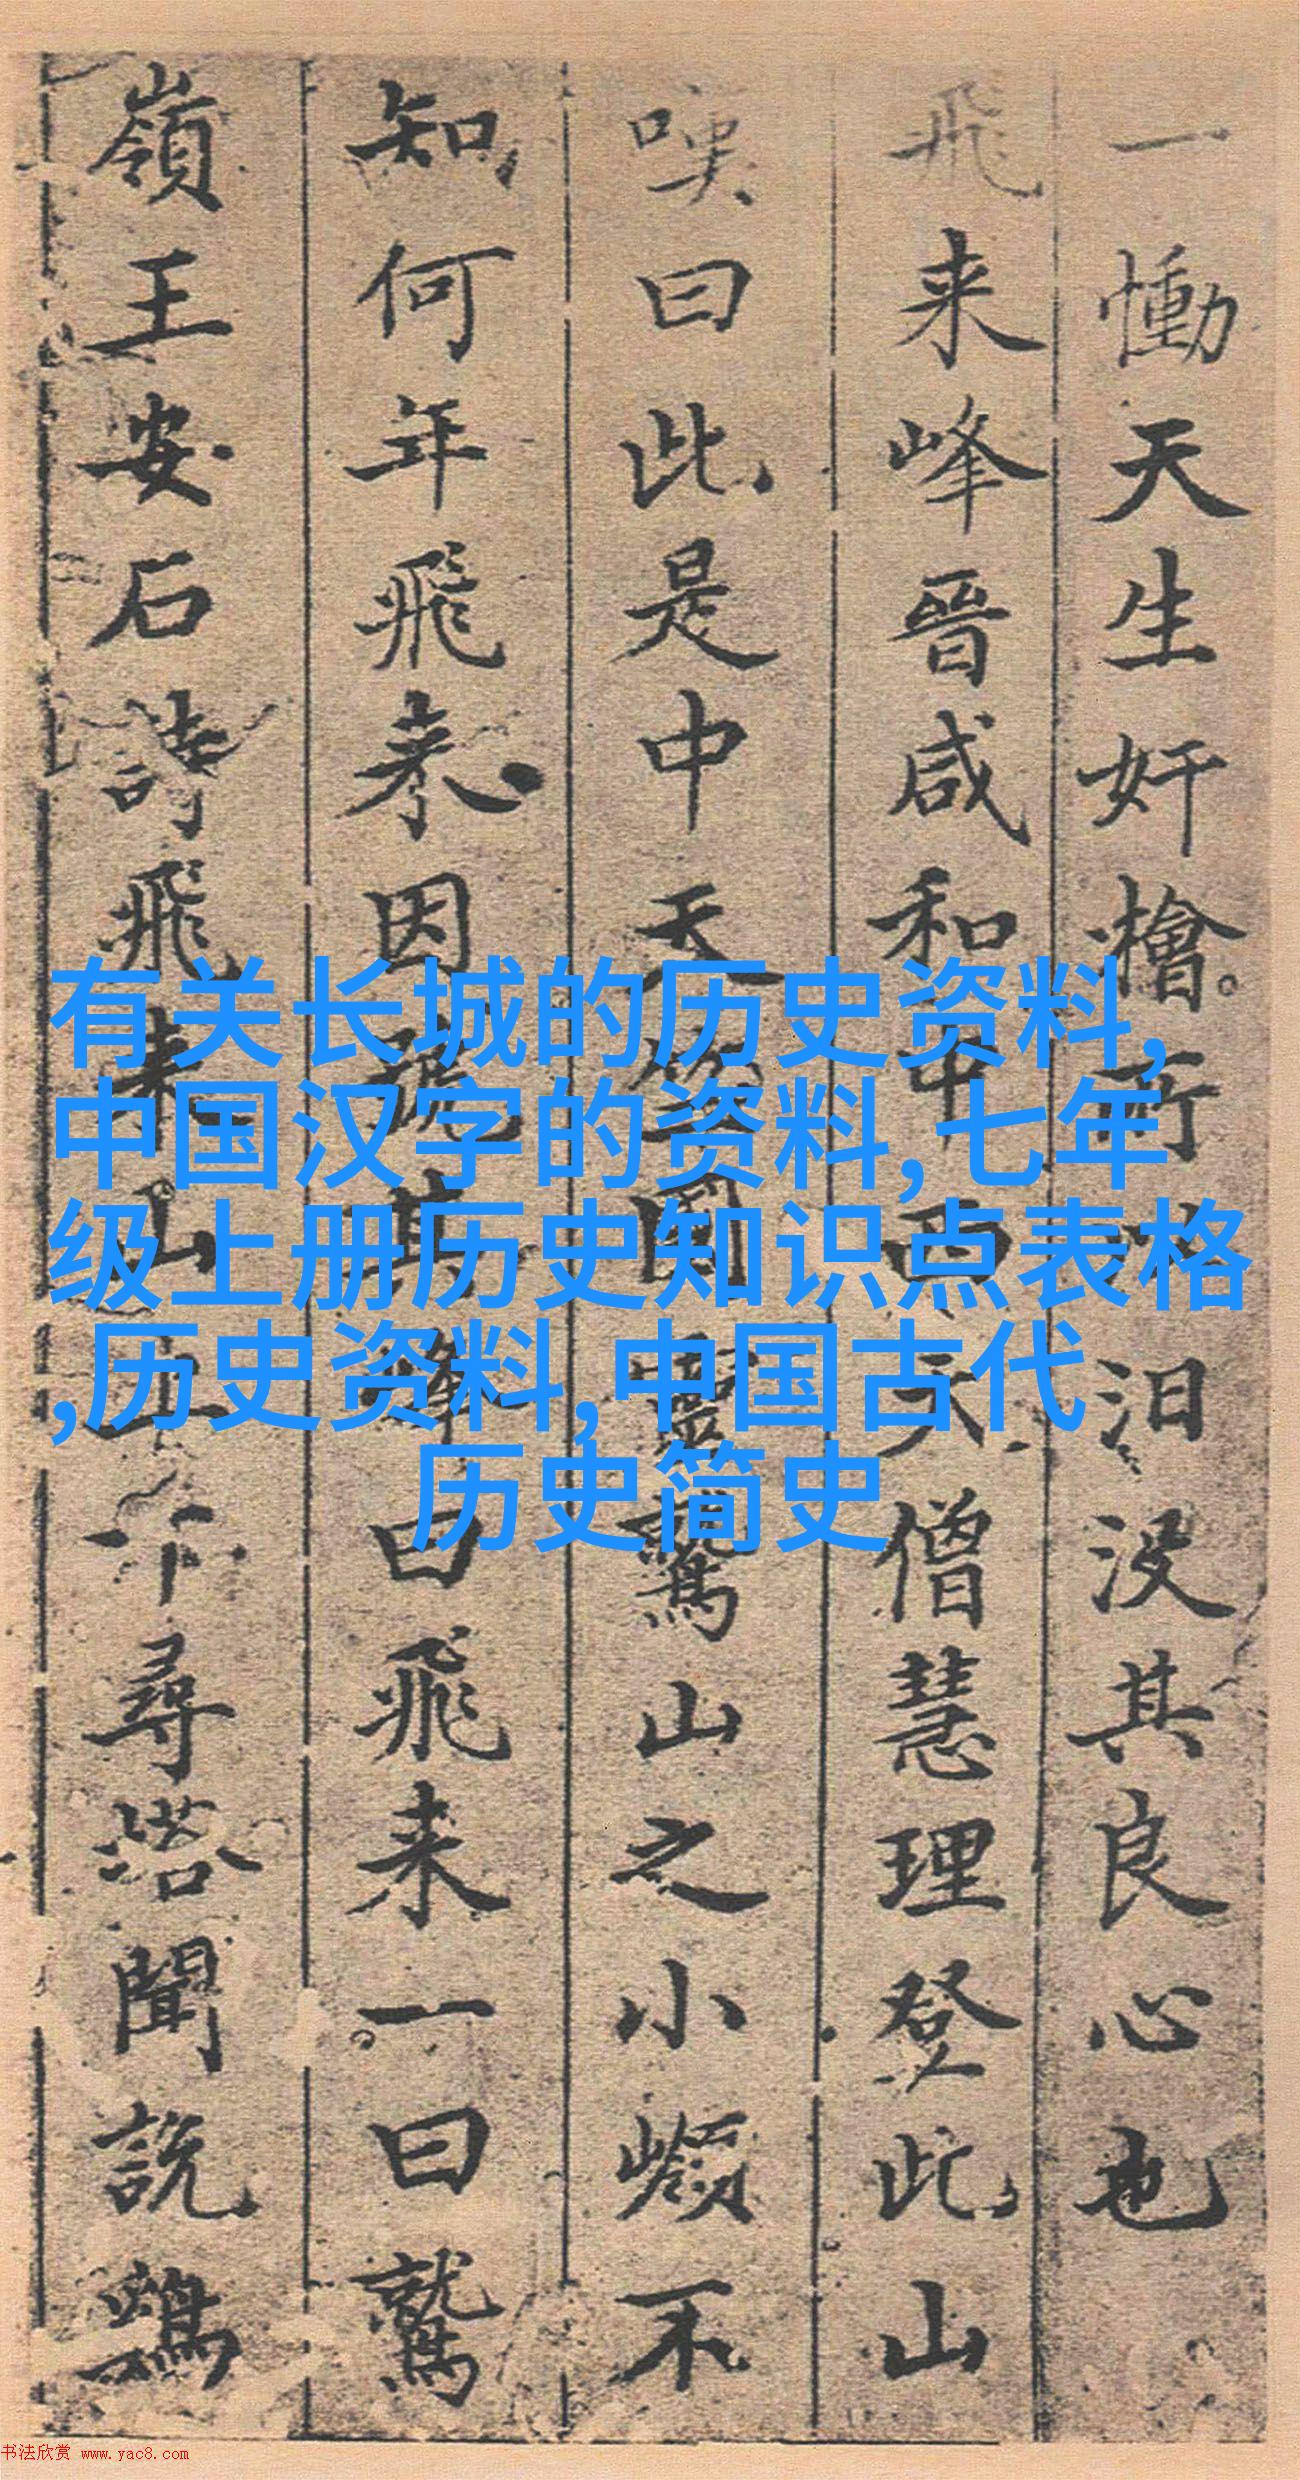 一慟天生奸檜所以汩没其良心也
飛来峰晉咸和中西天僧慧理登此山
嘆曰此是中天竺国靈鷲山之小嶺不
知何年飛来因號其峰曰飛来一曰鷲
嶺王安石詩飛来山上千尋塔聞說鷄
有关长城的历史资料,
中国汉字的资料,七年
级上册历史知识点表格
,历史资料,中国古代
历史简史
书法欣赏 www.yac8.com